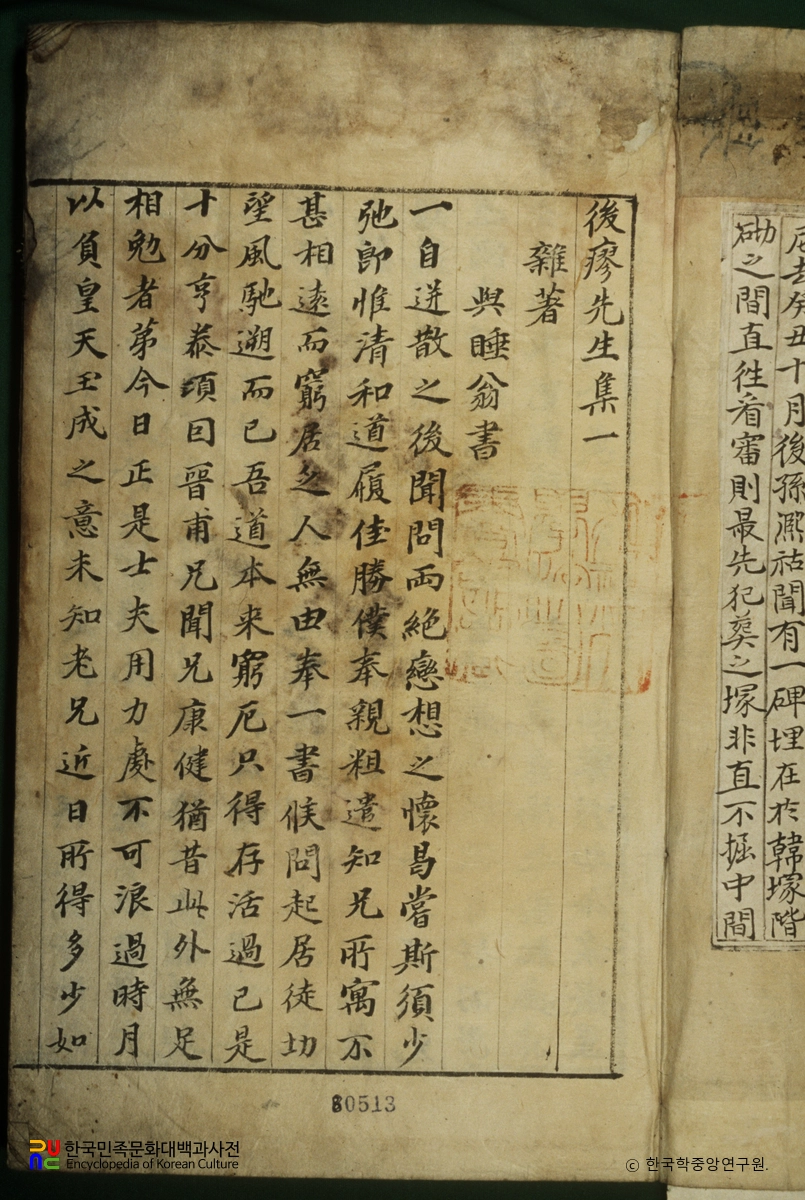 後瘳先生集一
雜著
與睡翁書
一自逬散之後聞問兩絶戀想之懷曷嘗斯須少
弛卽惟淸和道履佳勝僕奉親粗遣知兄所寓不
甚相遠而窮居之人無由奉一書候問起居徒切
望風馳遡而已吾道本来窮厄只得存活過已是
十分亨泰頃因晉甫兄聞兄康健猶昔此外無足
相勉者苐今日正是士夫用力處不可浪過時月
以負皇天玉成之意未知老兄近日所得多少如
后去癸丑十月後孫凞祜聞有一碑埋在於韓塚階
砌之間直徃看審則最先犯葬之塚非直不掘中間
80513
한국민족문화대백과사전
Encyclopedia of Korean Culture
ⓒ 한국학중앙연구원.